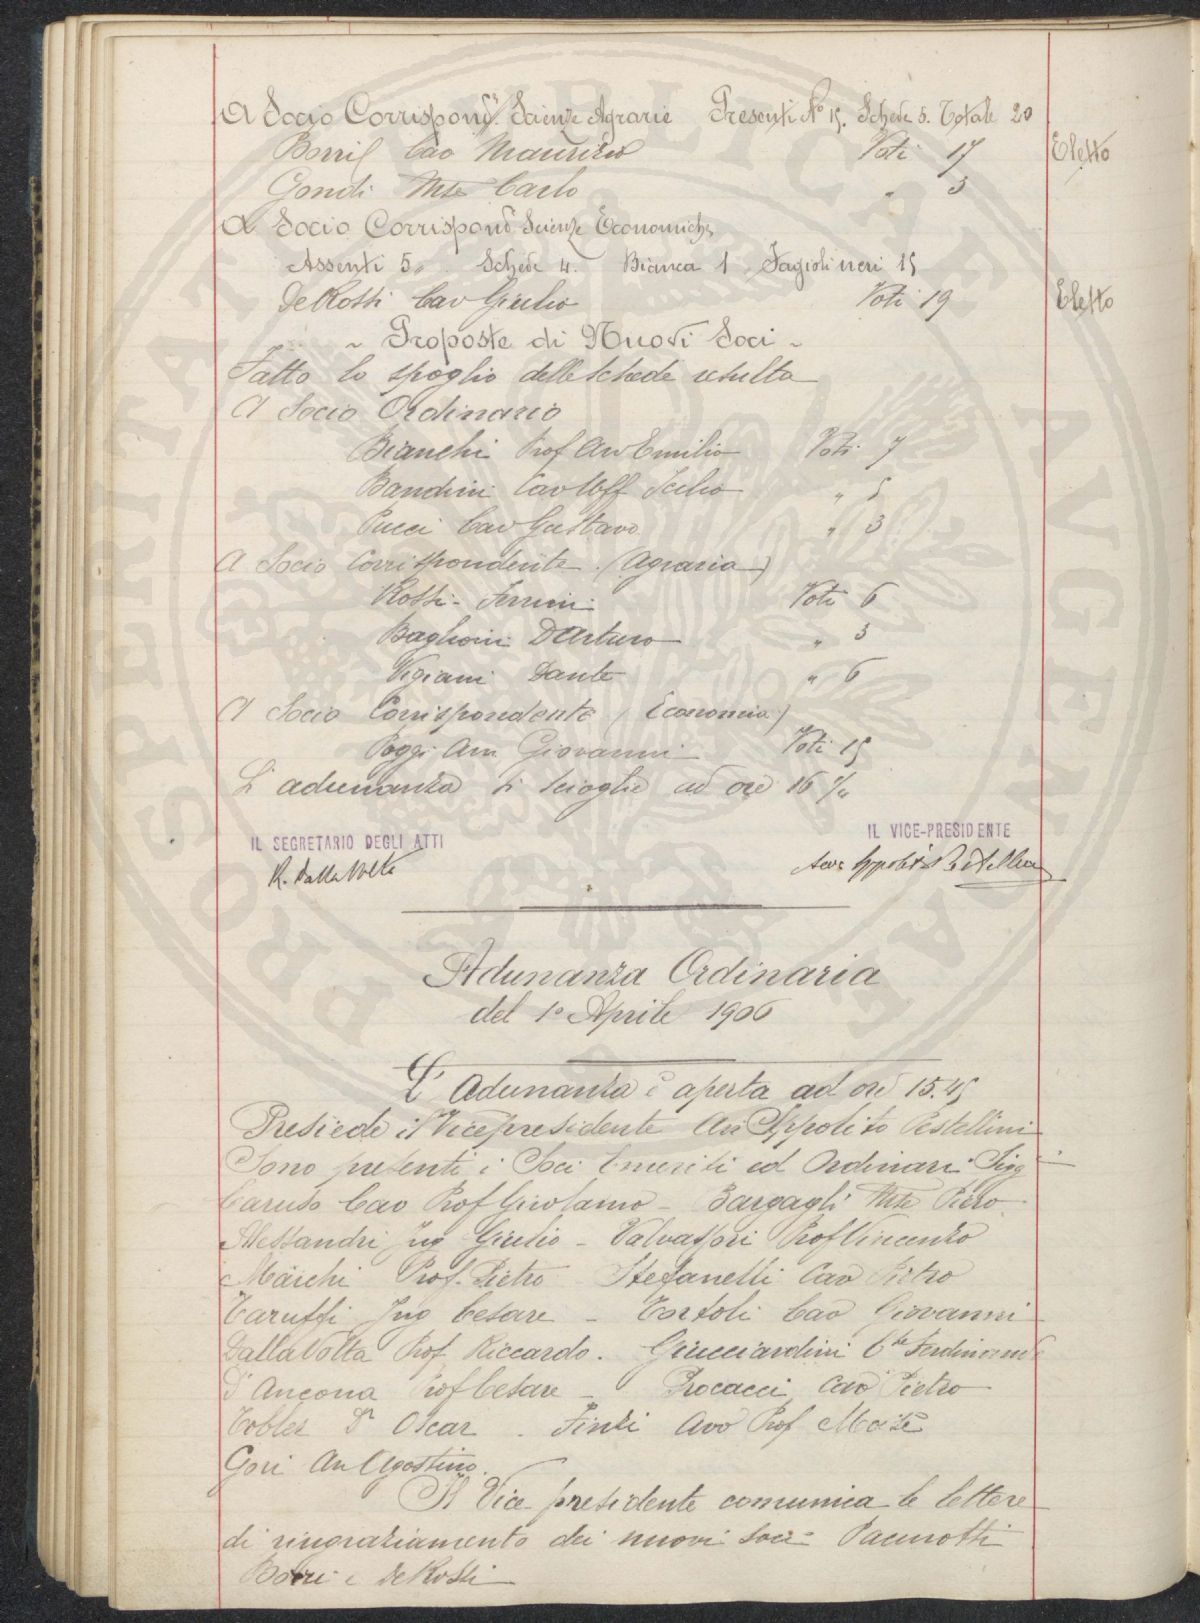 A Socio Corrispondte Scienze Agrarie Presenti No 15. Schede 5. Totale 20
Cav Maurizio Voti 17 Eletto
Gondi Mse Carlo " 3
A Socio Corrispond Scienze Economiche
Assenti 5, Schede 4. Bianca 1, Fagioli neri 15
DeRossi Cav Giulio Voti 19 Eletto
~ Proposte di Nuovi Soci ~
Fatto lo spoglio delle schede risulta
A Socio Ordinario
Bianchi Prof Avv Emilio Voti 7
Bandini Cav Uff Icilio " 5
Pucci Cav Gustavo " 3
A Socio Corrispondente (Agraria)
Rossi-Ferrini Voti 6
Baglioni D Arturo " 3
Vigiani Dante " 6
A Socio Corrispondente (Economia)
Poggi Avv Giovanni Voti 15
L'adunanza si scioglie ad ore 16
IL SEGRETARIO DEGLI ATTI
IL VICE-PRESIDENTE
R. Dalla Volta
Ippolito Pestellini
Adunanza Ordinaria
del 1o Aprile 1906
L'Adunanza è aperta ad ore 15.45
Presiede il Vicepresidente Avv Ippolito Pestellini
Sono presenti i Soci Emeriti ed Ordinari Sigg
Caruso Cav Prof Girolamo - Bargagli Mse Piero
Alessandri Ing Giulio - Valvassori Prof Vincenzo
Marchi Prof. Pietro Stefanelli Cav Pietro
Taruffi Ing Cesare - Tortoli Cav Giovanni
DallaVolta Prof Riccardo. Guicciardini Cte Ferdinando
D'Ancona Prof Cesare - Procacci Cav Pietro
Tobler Dr Oscar. Finzi Avv Prof Moisè
Gori Avv Agostino.
Il Vice presidente comunica le lettere
di ringraziamento dei nuovi soci Pacinotti
Borri e DeRossi
PROSPERITATI PUBLICAE AUGENDAE